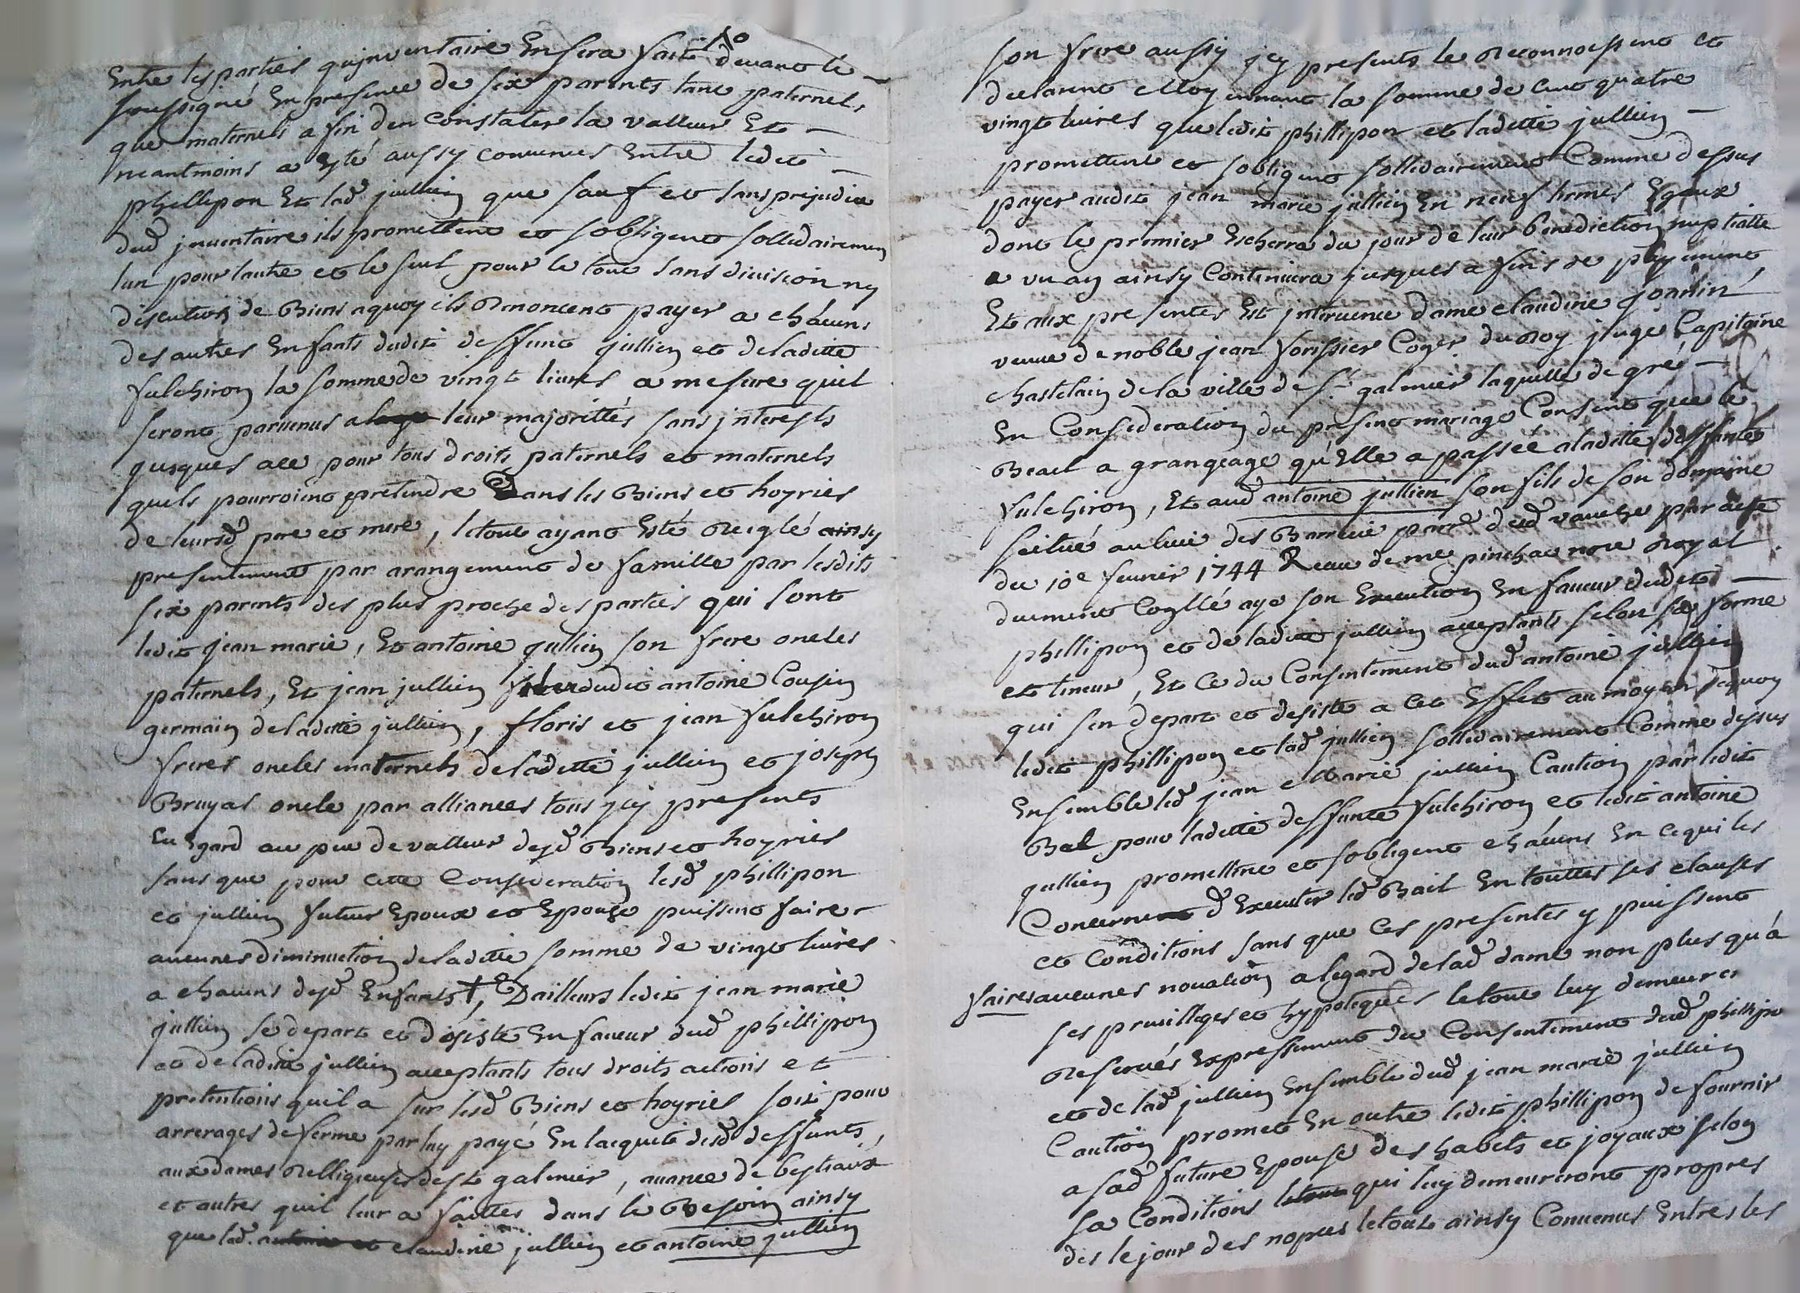 Entre les parties qu'jnventaire En sera fait devant le
soussigné En presence de six parents tant paternels
que maternels a fin d'en constater la valleur Et
neantmoins a Esté aussy convenus Entre ledit
phillipon Et lad. jullien que sauf et sans prejudice
dud jnventaire ils promettent et sobligent sollidairement
lun pour lautre et le seul pour le tout sans division ny
discution de Biens aquoy ils Renoncent payer a chacuns
des autres Enfants dudit deffunt jullien et de laditte
fulchiron la somme de vingt livres a mesure quil
seront parvenus a leur majorittés sans jnterests
jusques alle pour tous droits paternels et maternels
quils pourroint pretendre Dans les Biens et hoyries
de leursd pere et mere, le tout ayant Esté Reiglé ainsy
presentement par arangement de famille par lesdits
six parents des plus proche des parties qui sont
ledit jean marie, Et antoine jullien son frere oncles
paternels, Et jean jullien fils dudit antoine Cousin
germain de laditte jullien, floris et jean fulchiron
freres oncles maternels de laditte jullien et joseph
Bruyas oncle par alliances tous jcy presents
Eu Egard au peu de valleur desd Biens et hoyries
sans que pour cette Consideration lesd phillipon
et jullien futur Epoux et Epouse puissent faire
aucunes diminution de laditte somme de vingt livres
a chacuns desd Enfants †, Dailleurs ledit jean marie
jullien se depart et desiste En faveur dud phillipon
et de laditte jullien acceptants tous droits actions et
pretentions quil a sur lesd Biens et hoyries soit pour
arrerages de ferme par luy payé En lacquit desd deffunts,
aux dames Relligieuses de st galmier, avance de Bestiaux
et autres quil leur a faittes dans le Besoin ainsy
que lad. claudine jullien et antoine jullien
son frere aussy jcy presents le Reconnoissent et
declarent Moyennant la somme de cent quatre
vingt livres que ledit phillipon et laditte jullien
promettent et sobligent sollidairement Comme dessus
payer audit jean marie jullien En neuf termes Egaux
dont le premier Escherra du jour de leur benediction nuptialle
a un an ainsy Continuera jusques a fins de payement
Et aux presentes Est jntervenue dame claudine jonnin
veuve de noble jean forissier Coner. du Roy juge Capitaine
chastelain de la ville de st galmier laquelle de gré
En Consideration du present mariage Consent que le
Beail a grangeage qu'Elle a passée a laditte deffunte
fulchiron, Et aud antoine jullien son fils de son domaine
scitué au lieu des Barreur parr. dud vauche par acte
du 10e fevrier 1744 Receu de me. pinchac nore Royal
duement Conllé aye son Execution En faveur dudit
phillipon et de laditte jullien acceptants selon sa forme
et teneur, Et Ce du Consentement dud antoine jullien
qui s'en depart et desiste a cet Effet au moyen dequoy
ledit phillipon et lad jullien sollidairement Comme dessus
Ensemble led jean Marie jullien Caution par ledit
Bail pour laditte deffunte fulchiron et ledit antoine
jullien promettent et sobligent chacuns En ce qui les
Concerne d'Executer led Bail En touttes ses clauses
et Conditions sans que Ces presentes y puissent
faires aucunes novation a legard de lad dame non plus qu'à
ses privilleges et hypoteques le tout luy demeurer
Reservés Expressement du Consentement dud phillipon
et de lad jullien Ensemble dud jean marie jullien
Caution promet En outre ledit phillipon de fournir
a sad future Epouse des habits et joyaux selon
sa Conditions qui luy demeureront propres
des le jour des nopces le tout ainsy Convenus Entres les